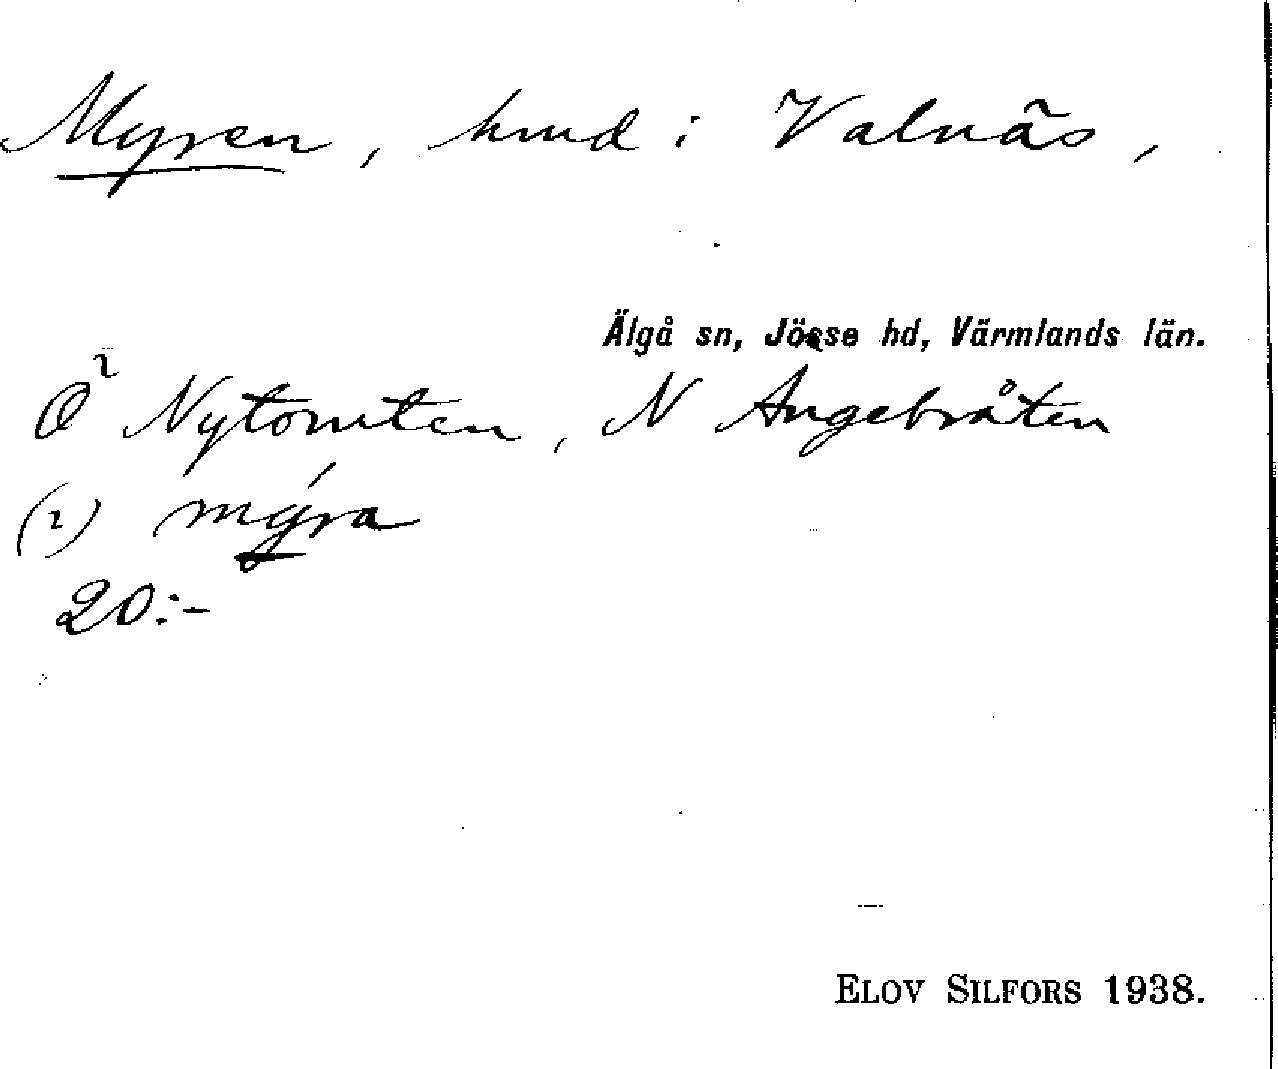 Myren, hmd i Valnäs,
Älgå sn, Jösse hd, Värmlands län.
Ö Nytomten, N Angebråten
(2) mýra
20:-
ELOV SILFORS 1938.